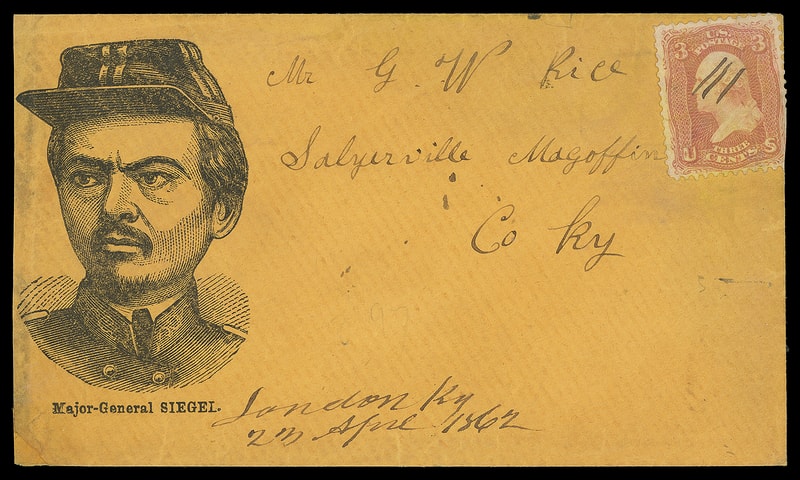 Mr G. W Rice
Salyerville Magoffin
Co Ky
U.S.
POSTAGE
3 3
U THREE S
CENTS
Major-General SIEGEL.
London Ky
23 Aprl 1862